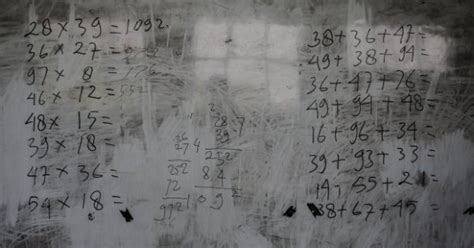 28×39=1092
36×27=
97×8=
46×12=552
48×15=
39×18=
47×36=
54×18=
36
27
252
72
28
39
252
84
1092
38+36+47=
49+38+94=
36+47+76=
49+94+48=
16+96+34=
39+93+33=
19+55+21=
38+67+45=